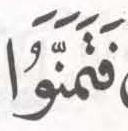 فَتَمَنَّوُا